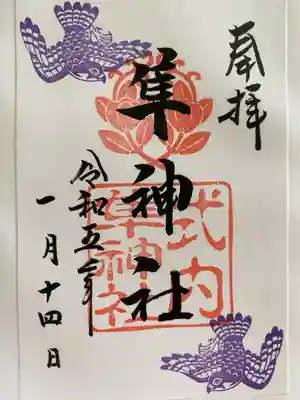 奉拝
隼神社
式内
隼神社
令和五年
一月十四日